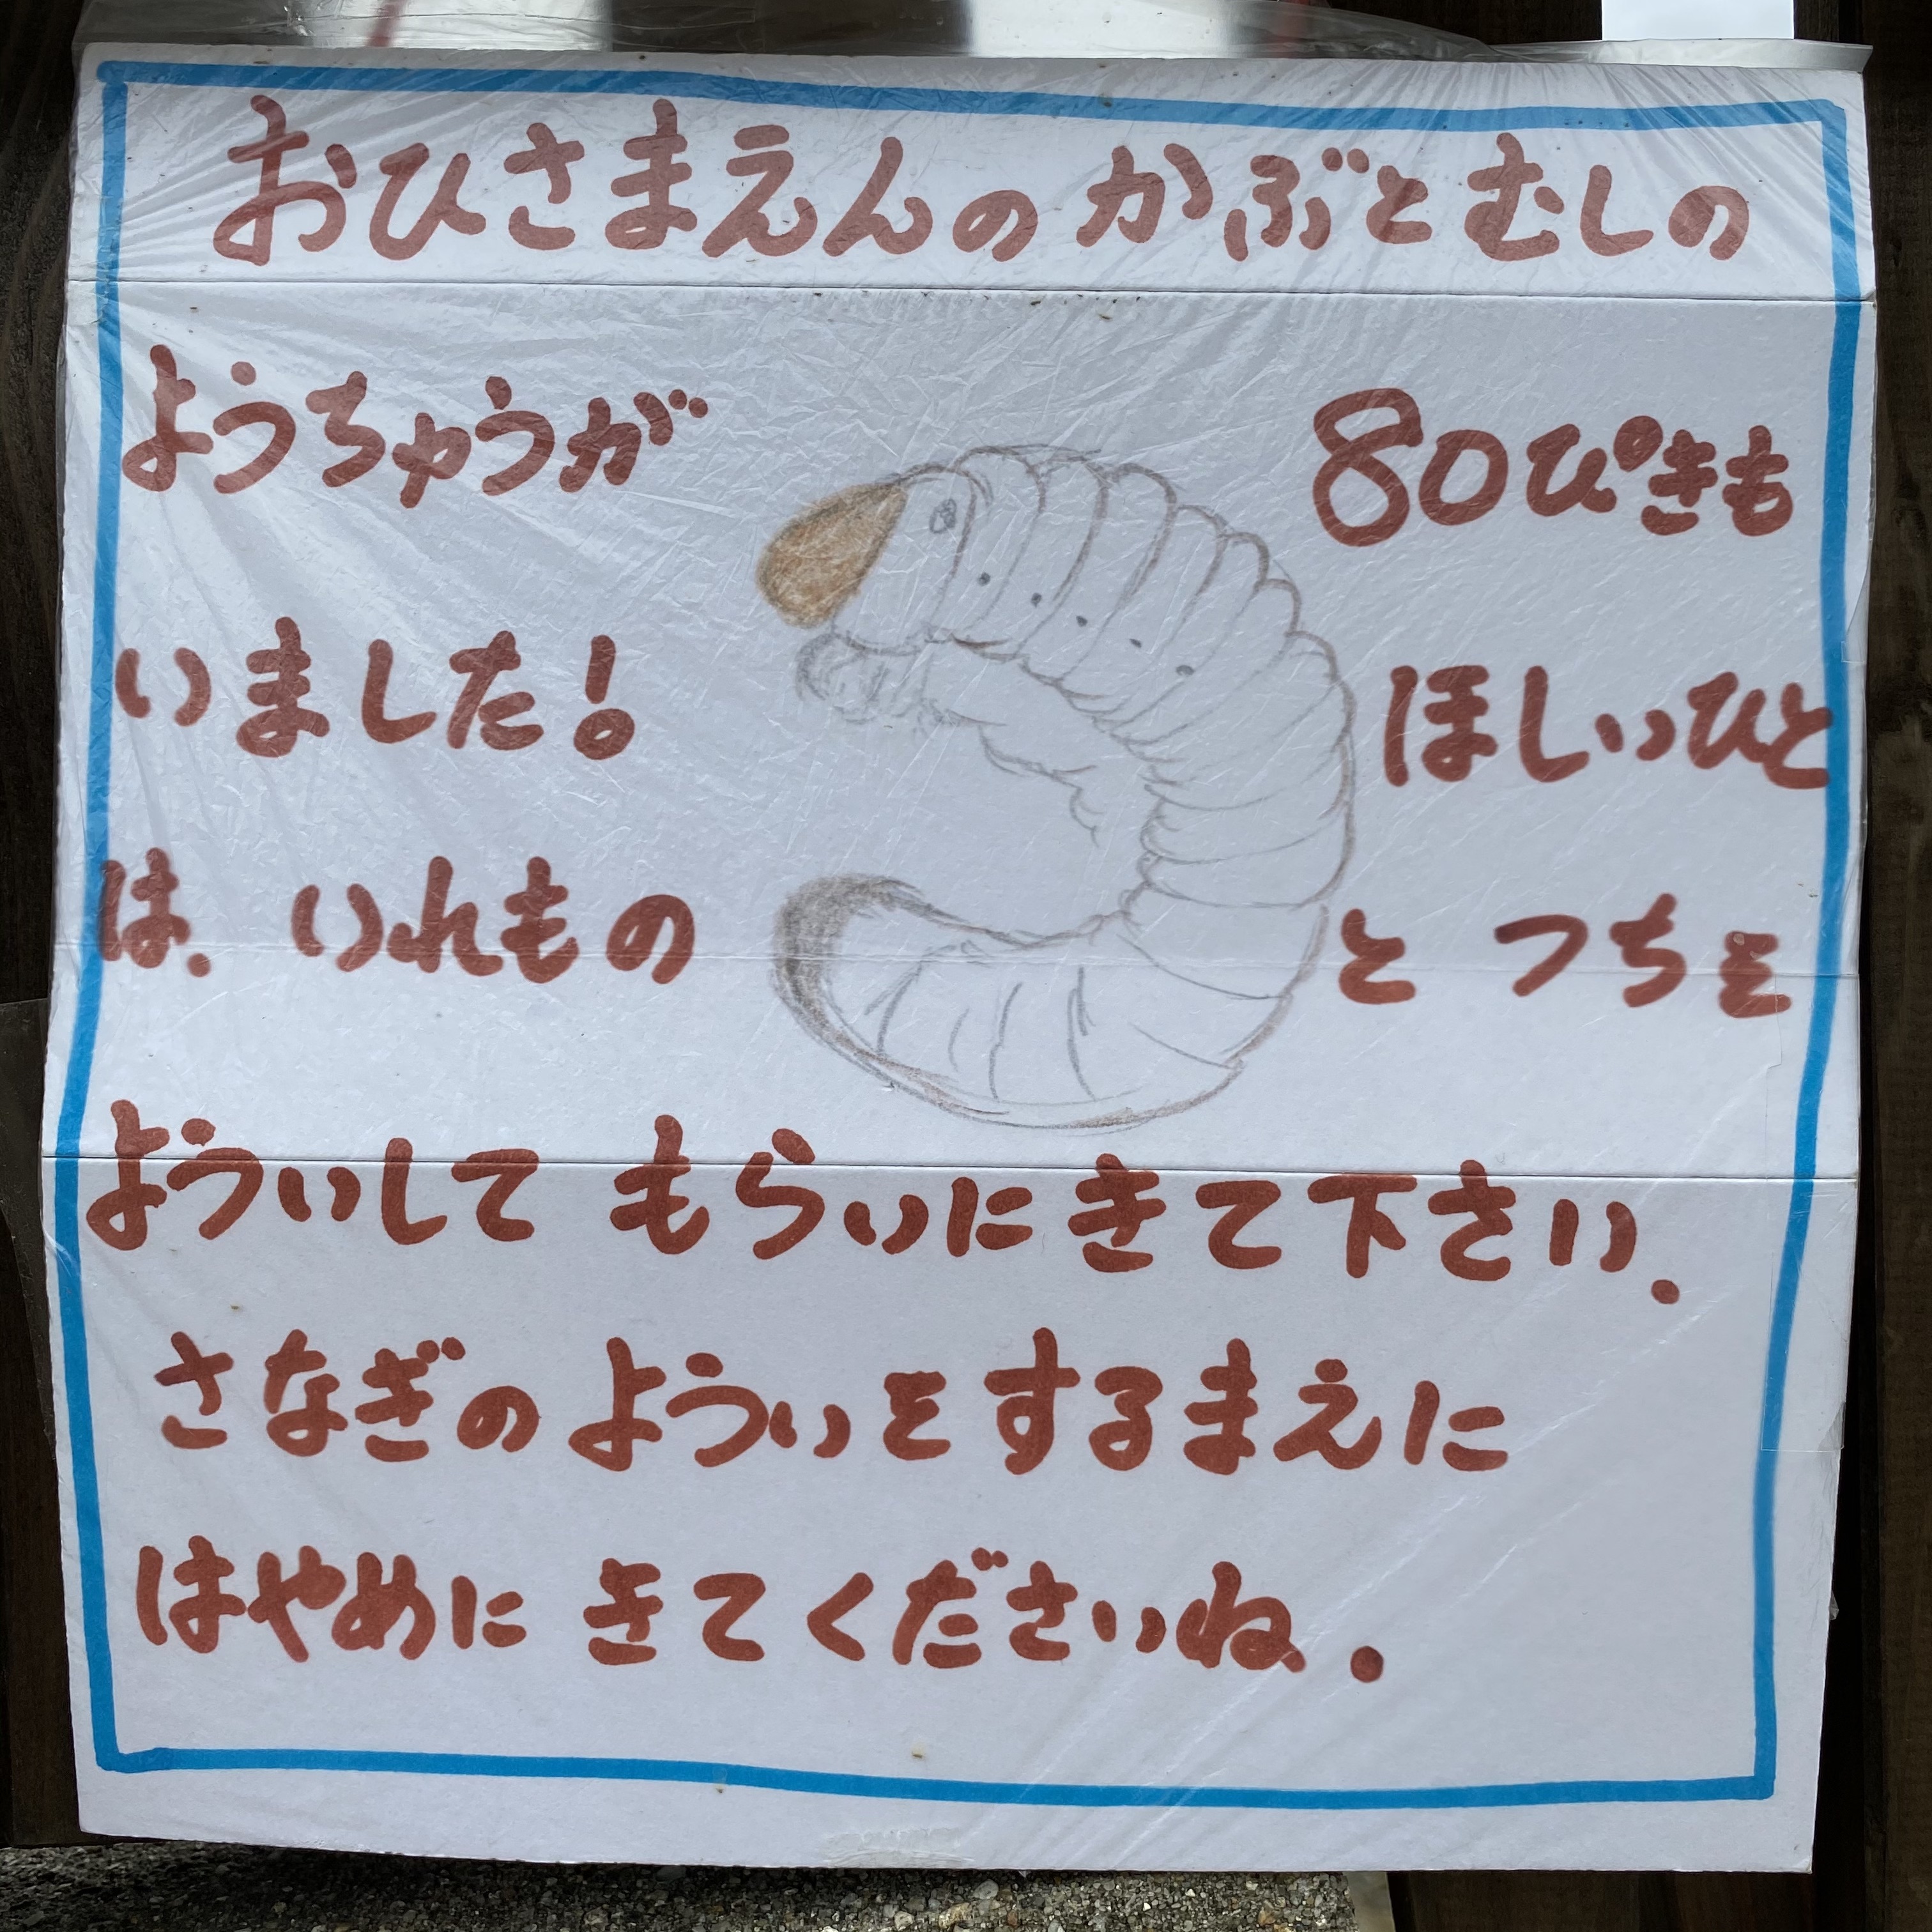 おひさまえんのかぶとむしの
ようちゅうが 80ぴきも
いました! ほしいひと
は、いれもの と つちを
よういして もらいにきて下さい.
さなぎの よういをするまえに
はやめに きてくださいね.